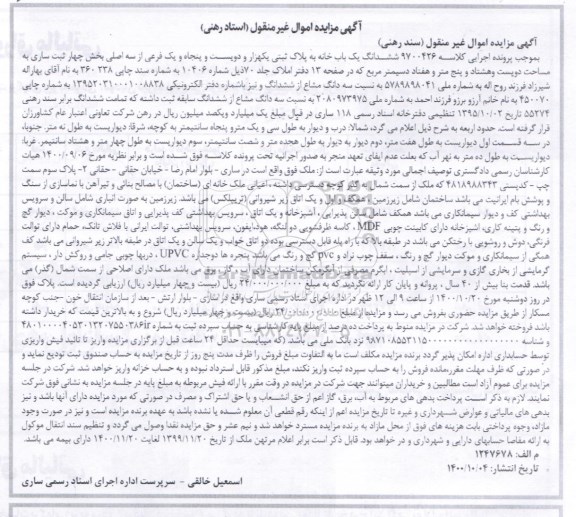 آگهی مزایده اموال غیر منقول (اسناد رهنی)
آگهی مزایده اموال غیر منقول (سند رهنی)
بموجب پرونده اجرایی کلاسه ۹۷۰۰۴۲۶ ششدانگ یک باب خانه به پلاک ثبتی یکهزار و دویست و پنجاه و یک فرعی از سه اصلی بخش چهار ثبت ساری به
مساحت دویست وهشتاد و پنج متر و هفتاد دسیمتر مربع که در صفحه ۱۳ دفتر املاک جلد ۷۰ ذیل شماره ۱۰۴۰۶ به شماره سند چاپی ۲۳۸ ۳۶۰ به نام آقای بهاراله
شیرزاد فرزند روح اله به شماره ملی ۵۷۸۹۸۹۸۰۴۱ به نسبت سه دانگ مشاع از ششدانگ و نیز باشماره دفتر الکترونیکی ۱۳۹۵۲۰۳۱۰۰۰۱۰۰۸۸۳۸ به شماره چاپی
۴۵۰۰۷۰ به نام خانم آرزو برزو فرزند احمد به شماره ملی ۲۰۸۰۹۷۳۹۷۵ به نسبت سه دانگ مشاع از ششدانگ سابقه ثبت داشته که تمامت ششدانگ برابر سند رهنی
۵۵۲۷۴ تاریخ ۱۳۹۵/۱۰/۰۲ تنظیمی دفترخانه اسناد رسمی ۱۱۸ ساری در قبال مبلغ یک میلیارد ویکصد میلیون ریال در رهن شرکت تعاونی اعتبار عام کشاورزان
قرار گرفته است. حدود اربعه به شرح ذیل اعلام می گردد، شمالا: درب و دیوار به طول سی و یک مترو پنجاه سانتیمتر به کوچه، شرقا: دیواریست به طول نه متر، جنوبا،
در سه قسمت اول دیواریست به طول هفت متر، دوم دیوار به دیوار به طول هجده متر و شصت سانتیمتر، سوم دیواریست به طول چهار متر و هشتاد سانتیمتر. غربا:
دیواریست به طول ده متر به نهر آب که بعلت عدم ایفای تعهد منجر به صدور اجرائیه تحت پرونده کلاسه فوق شده است و برابر نظریه مورخ ۱۴۰۰/۰۹/۰۶ هیات
کارشناسان رسمی دادگستری توصیف اجمالی مورد وثیقه عبارت است از: ملک فوق واقع است در ساری - بلوار امام رضا - خیابان حقانی - حقانی ۲- پلاک سوم سمت
چپ - کدپستی ۴۸۱۸۹۸۸۳۴۳ که ملک از سمت شمال به گذر کوچه دسترسی داشته، اعیانی ملک خانه ای (ساختمان) با مصالح بنائی و تیرآهن با نماسازی از سنگ
و پوشش بام ایرانیت می باشد ساختمان شامل زیرزمین، همکف، اول و یک اتاق زیر شیروانی (تریپلکس) می باشد. زیرزمین به صورت انباری شامل سالن و سرویس
بهداشتی کف و دیوار سیمانکاری می باشد همکف شامل سالن پذیرایی، آشپزخانه و یک اتاق، سرویس بهداشتی کف پذیرایی و اتاق سیمانکاری و موکت، دیوار گچ
و رنگ و پتینه کاری، آشپزخانه دارای کابینت چوبی MDF، کاسه ظرفشویی دو لنگه، هود، آیفون، سرویس بهداشتی، توالت ایرانی با فلاش تانک، حمام دارای توالت
فرنگی، دوش و روشویی با رختکن می باشد در طبقه بالا که با راه پله قابل دسترسی بوده دو اتاق خواب و یک سالن و یک اتاق در طبقه بالاتر زیر شیروانی می باشد کف
همگی از سیمانکاری و موکت دیوار گچ و رنگ، سقف چوب نراد و pvc گچ و رنگ می باشد پنجره ها دوجداره UPVC، دربها چوبی جامی و روکش دار، سیستم
گرمایشی از بخاری گازی و سرمایشی از اسپلیت،
باشد. قدمت بنا بیش از ۴۰ سال، پروانه و پایان کار ارائه نگردید که به مبلغ ۲۴/۰۰۰/۰۰۰/۰۰۰ ریال (بیست وچهار میلیارد ریال) ارزیابی گردیده است. پلاک فوق
در روز دوشنبه مورخ ۱۴۰۰/۱۰/۲۰ از ساعت ۹ الی ۱۲ ظهر در اداره اجرای اسناد رسمی ساری واقع در ساری - بلوار ارتش - بعد از سازمان انتقال خون - جنب کوچه
مسکار از طریق مزایده حضوری بفروش می رسد و مزایده از مبلغ ریال (بیست و چهار میلیارد ریال) شروع و به بالاترین قیمت که خریدار داشته
باشد فروخته خواهد شد. شرکت در مزایده منوط به پرداخت ده درصد از مبلغ پایه کارشناسی به حساب سپرده ثبت به شماره
و شناسه نزد بانک ملی می باشد. (که میبایست حداقل ۲۴ ساعت قبل از برگزاری مزایده واریز تا تائید فیش واریزی
توسط حسابداری اداره امکان پذیر گردد برنده مزایده مکلف است ما به التفاوت مبلغ فروش را ظرف مدت پنج روز از تاریخ مزایده به حساب صندوق ثبت تودیع نماید و
در صورتی که ظرف مهلت مقررمانده فروش را به حساب سپرده ثبت واریز نکند، مبلغ مذکور قابل استرداد نبوده و به حساب خزانه واریز خواهد شد. شرکت در جلسه
مزایده برای عموم آزاد است مطالبین و خریداران میتوانند جهت شرکت در مزایده در وقت مقرر با ارائه فیش مربوطه به مبلغ پایه در جلسه مزایده به نشانی فوق شرکت
نمایند. لازم به ذکر است پرداخت بدهی های مربوط به آب، برق، گاز اعم از حق انشعاب و یا حق اشتراک و مصرف در صورتی که مورد مزایده دارای آنها باشد و نیز
بدهی های مالیاتی و عوارض شهرداری و غیره تا تاریخ مزایده اعم از اینکه رقم قطعی آن معلوم شده یا نشده باشد به عهده برنده مزایده است و نیز در صورت وجود
مازاد، وجوه پرداختی بابت هزینه های فوق از محل مازاد به برنده مزایده مسترد خواهد شد و نیم عشر و حق مزایده نقدا وصول می گردد و تنظیم سند انتقال موکول
به ارائه مفاصا حسابهای دارایی و شهرداری و در خواهد بود. قابل ذکر است برابر اعلام مرتهن ملک از تاریخ ۱۳۹۹/۱۱/۲۰ لغایت ۱۴۰۰/۱۱/۲۰ دارای بیمه می باشد.
م الف: ۱۲۴۷۶۷۸
تاریخ انتشار: ۱۴۰۰/۱۰/۰۴
اسمعیل خالقی - سرپرست اداره اجرای اسناد رسمی ساری